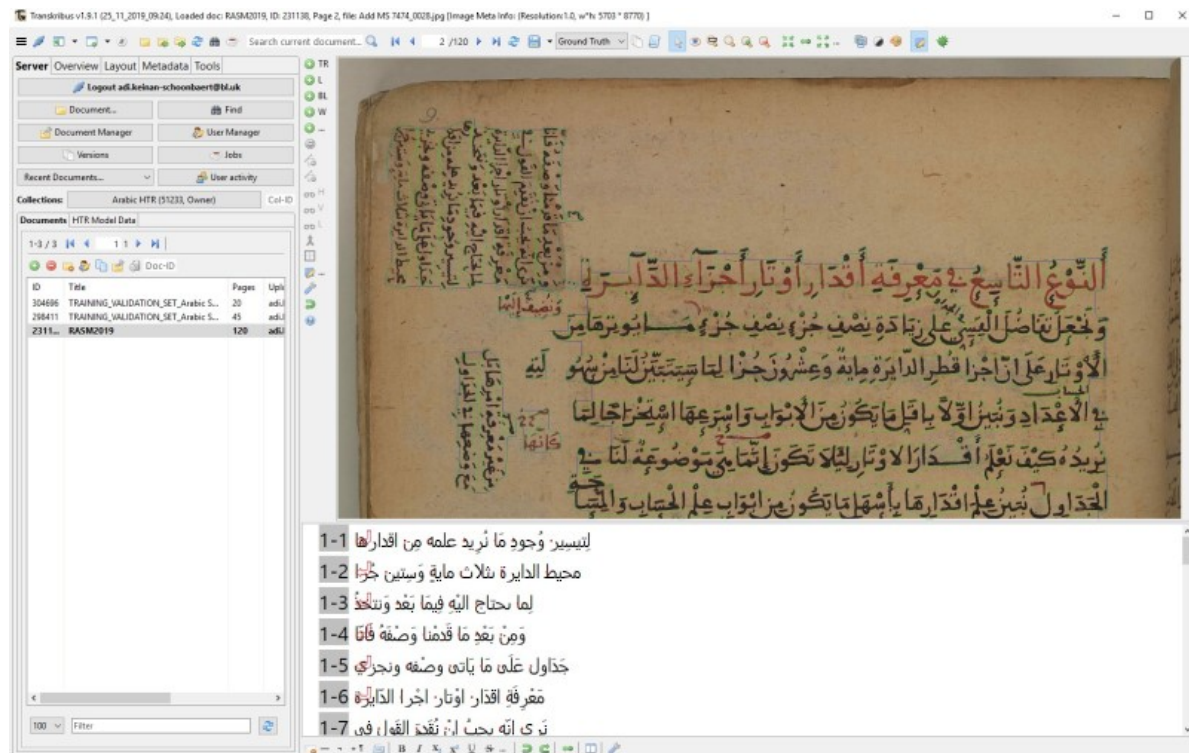 Transkribus v1.9.1 (25_11_2019_09:24), Loaded doc: RASM2019, ID: 231138, Page 2, file: Add MS 7474_0028.jpg [Image Meta Info: (Resolution:1.0, w*h: 5703 * 8770) ]
Search current document...
2 /120
Ground Truth
Server Overview Layout Metadata Tools
Logout adi.keinan-schoonbaert@bl.uk
Document... Find
Document Manager User Manager
Versions Jobs
Recent Documents... User activity
Collections: Arabic HTR (51233, Owner) Col-ID
Documents HTR Model Data
1-3 / 3 1 1 Doc-ID
ID Title Pages Uplo
304696 TRAINING_VALIDATION_SET_Arabic S... 20 adi.l
298411 TRAINING_VALIDATION_SET_Arabic S... 45 adi.l
2311... RASM2019 120 adi.l
100 Filter
TR
L
BL
W
H
V
L
النَّوْعُ التَّاسِعُ فِي مَعْرِفَةِ أَقْدَارِ أَوْتَارِ أَجْزَاءِ الدَّايِرَةِ
وَنَجْعَلُ تَفَاضُلَ الْقِسِيِّ عَلَى زِيَادَةِ نِصْفِ جُزْءٍ نِصْفِ جُزْءٍ
الْأَوْتَارِ عَلَى انّ اجزا قُطْرِ الدَّايِرَةِ مِايةٌ وَعِشْرُونَ جُزْا لِمَا سَيَتَبَيَّنُ لَنَا مِنْ
فِي الْاعْدَادِ وَنُبَيِّنُ اوّلًا بِاقَلِّ مَا يَكُونُ مِنَ الْابْوَابِ وَاسْرَعِهَا اسْتِخْرَاجًا لِمَا
نُرِيدُهُ كَيْفَ نَعْلَمُ أَقْدَارَ الْاوْتَارِ لِئَلَّا تَكُونَ إِنَّمَا هِيَ مَوْضُوعَةٌ لَنَا فِي
الْجَدَاوِلِ نُبَيِّنُ عِلْمَ اقْدَارِهَا بِأَسْهَلِ مَا يَكُونُ مِن ابْوَابِ عِلْمِ الْحِسَابِ وَ
1-1 لِتيسِير وُجودِ مَا نُريد علمه مِن اقدارها
1-2 محيط الدايرة ثلاث مايةٍ وَستين جُزا
1-3 لِما ىحتاج اليْهِ فِيمَا بَعْد وَنتخذُ
1-4 وَمِنْ بَعْدِ مَا قَدمْنا وَصْفَهُ فَانَا
1-5 جَدَاول عَلَى مَا يَاتى وصْفه ونجزي
1-6 مَعْرفَةِ اقدَار اوْتار اجْرا الدَايرَة
1-7 نَرى انّه يجبُ انْ نُقَدمَ القَول فى